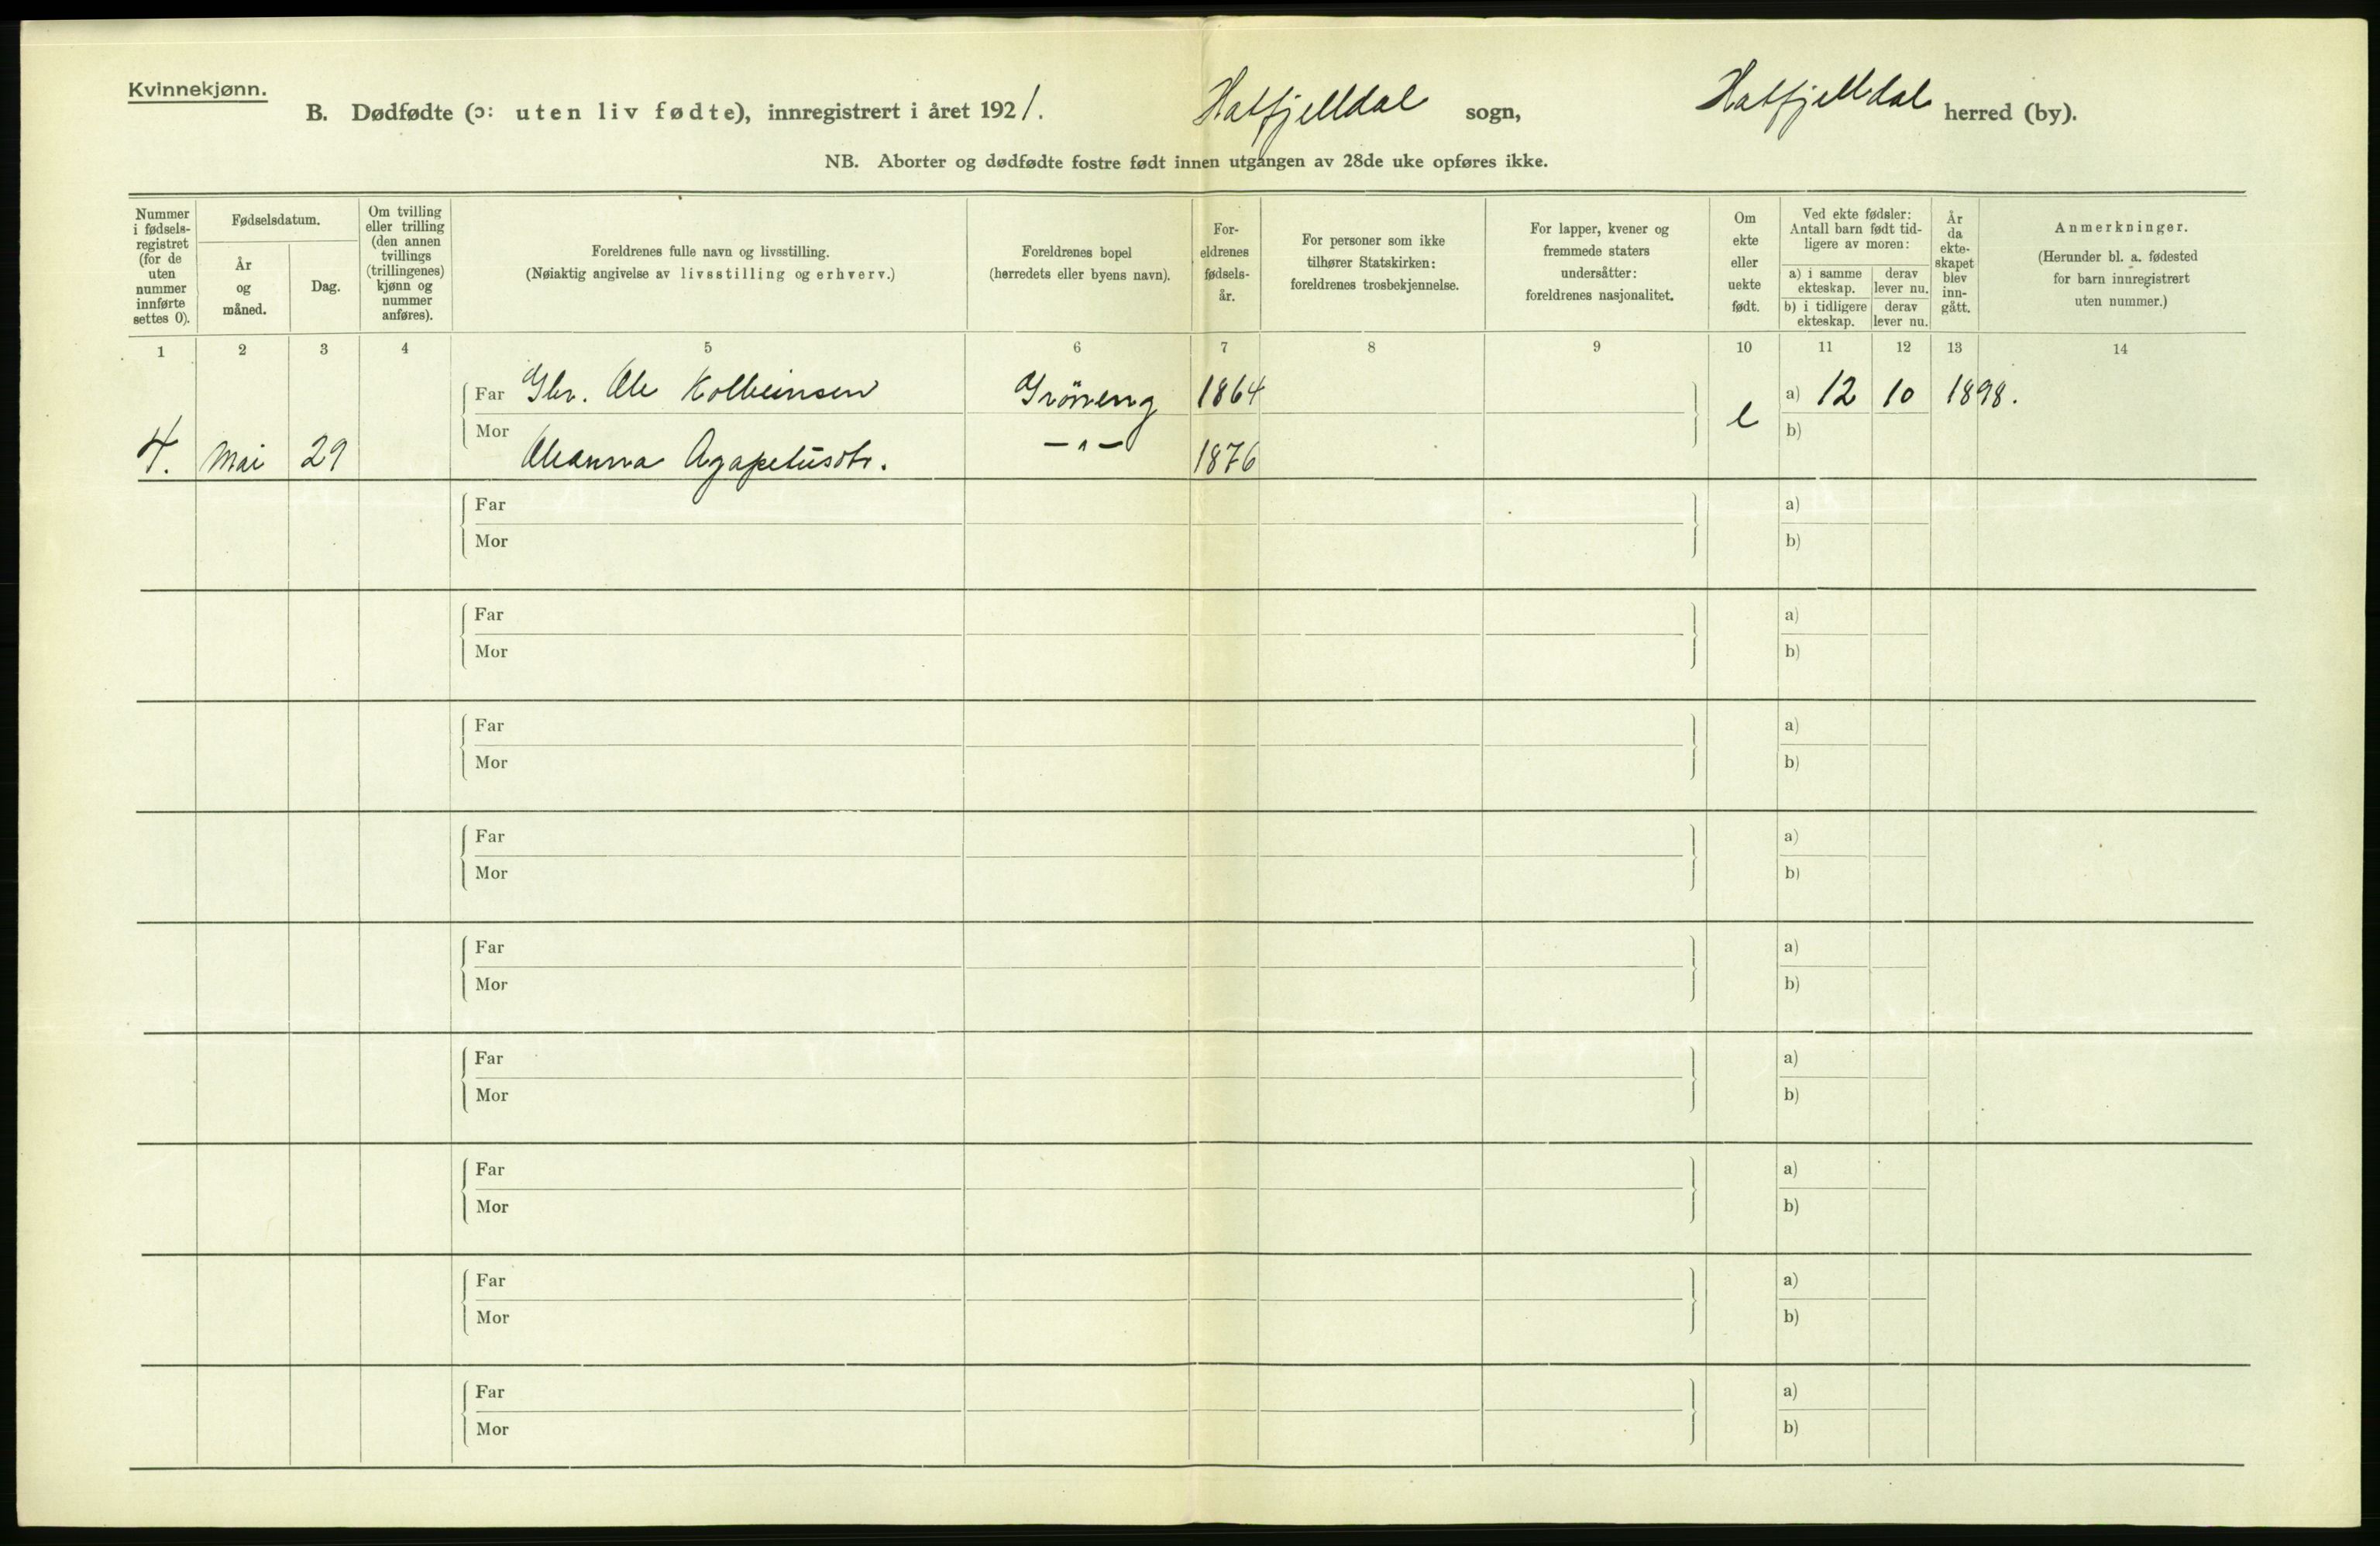 Kvinnekjønn.
B. Dødfødte (ɔ: uten liv fødte), innregistrert i året 1921. Hatfjelldal sogn, Hatfjelldal herred (by).
NB. Aborter og dødfødte fostre født innen utgangen av 28de uke opføres ikke.
Nummer i fødsels-registret (for de uten nummer innførte settes 0).
Fødselsdatum.
År og måned.
Dag.
Om tvilling eller trilling (den annen tvillings (trillingenes) kjønn og nummer anføres).
Foreldrenes fulle navn og livsstilling.
(Nøiaktig angivelse av livsstilling og erhverv.)
Foreldrenes bopel
(herredets eller byens navn).
For-eldrenes fødsels-år.
For personer som ikke tilhører Statskirken: foreldrenes trosbekjennelse.
For lapper, kvener og fremmede staters undersåtter: foreldrenes nasjonalitet.
Om ekte eller uekte født.
Ved ekte fødsler: Antall barn født tid-ligere av moren:
a) i samme ekteskap.
derav lever nu.
b) i tidligere ekteskap.
derav lever nu.
År da ekte-skapet blev inn-gått.
Anmerkninger.
(Herunder bl. a. fødested for barn innregistrert uten nummer.)
1 2 3 4 5 6 7 8 9 10 11 12 13 14
Far Gbr. Ole Kolbeinsen Gröneng 1864 e a) 12 10 1898.
4. Mai 29 Mor Oleanna Agapetusdtr. — " — 1876 b)
Far a)
Mor b)
Far a)
Mor b)
Far a)
Mor b)
Far a)
Mor b)
Far a)
Mor b)
Far a)
Mor b)
Far a)
Mor b)
Far a)
Mor b)
Far a)
Mor b)